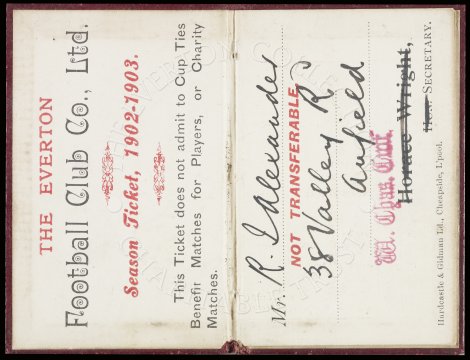 THE EVERTON
Football Club Co., Ltd.
Season Ticket, 1902-1903.
This Ticket does not admit to Cup Ties
Benefit Matches for Players, or Charity
Matches.
Mr. R. J Alexander
NOT TRANSFERABLE
38 Valley Rd
Anfield
Wm. Chas. Cuff.
Horace Wright,
Hon. SECRETARY.
Hardcastle & Gidman Ld., Cheapside, L'pool.
THE EVERTON COLLECTION
CHARITABLE TRUST